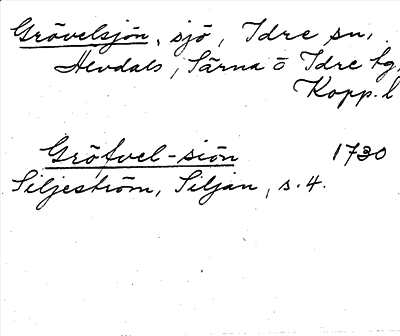 Grövelsjön, sjö, Idre sn,
Älvdals, Särna o Idre tg,
Kopp. l
Gröfvel-siön 1730
Siljeström, Siljan, s. 4.